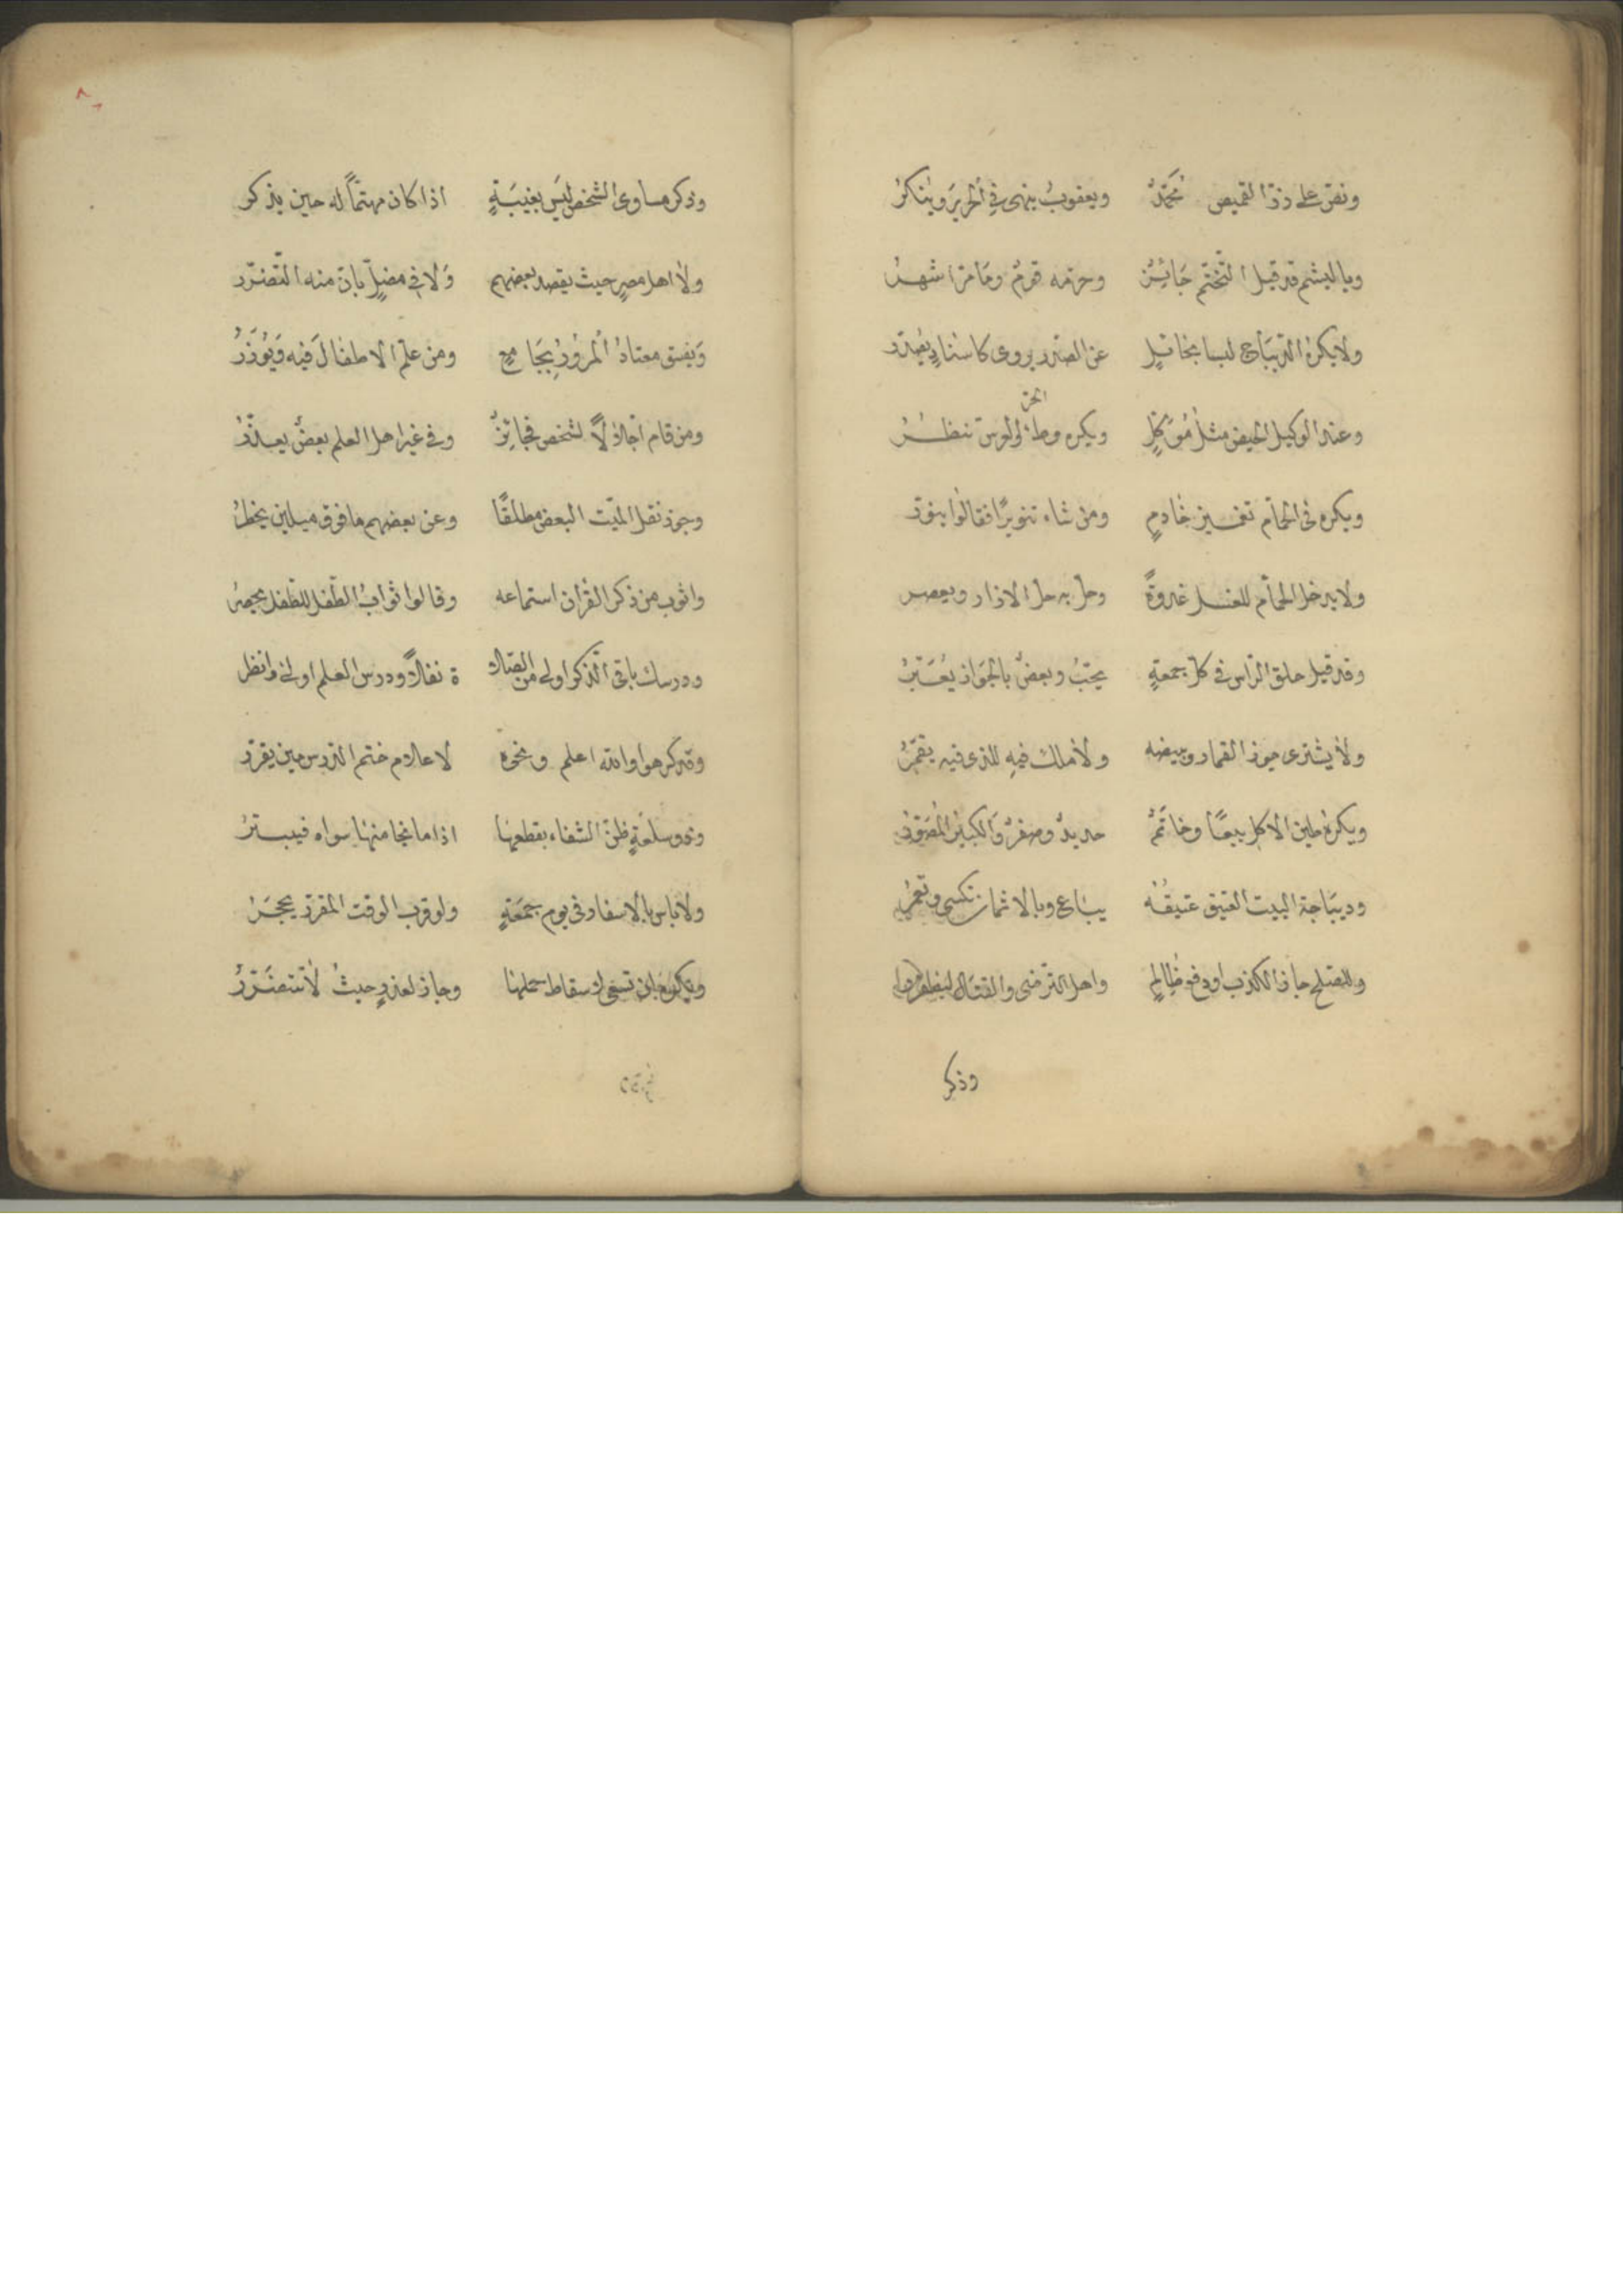 ونص على زر القميص محمد ويعقوب ينهى في الحرير وينكر
وباليشم قد قيل التختم جائز وحرمه قوم وما مر اشهر
ولا يكره الديباج لبسا بحائل عن الصدر يروى كاسناد يصدر
الخز
وعند الوكيل الحيض مثل موكل ويكره وطئ تنظر
ويكره في الحمام تغميز خادم ومن شاء تنويرا فقالوا ينور
ولا يدخل الحمام للغسل غدوة وحل به حل الازار ويعصر
وقد قيل حلق الراس في كل جمعة يحب وبعض بالجواز يعبر
ولا يشترى جوز القمار وبيضه ولا ملك فيه للذى فيه يقمر
ويكره طين الاكل بيعا وخاتم حديد وصفر والكبير المصور
وديباجة البيت العتيق عتيقه يباع وبالاثمان تكسى وتعمر
وللصلح جاز الكذب او دفع ظالم واهل الترضى والقتال ليظفروا
وذكر
وذكر مساوى الشخص ليس بغيبة اذا كان مهتما له حين يذكر
ولا اهل مصر حيث يقصد بعضهم ولا في مضل بان منه التضرر
ويفسق معتاد المرور بجامع ومن علم الاطفال فيه ويوزر
ومن قام اجلالا لشخص فجائز وفي غير اهل العلم بعض يعزر
وجوز نقل الميت البعض مطلقا وعن بعضهم ما فوق ميلين يحظر
واثوب من ذكر القران استماعه وقالوا ثواب الطفل للطفل يحصر
ودرسك باقى الذكر اولى من الصلا ة نفلا ودرس العلم اولى وانظر
وقد كرهوا والله اعلم ونحوه لاعلام ختم الدرس حين يقرر
وذو سلعة ظن الشفاء بقطعها اذا ما نجا منها سواه فيبتر
ولا باس بالاسفار في يوم جمعة ولو قرب الوقت المقرر يحجر
ويكره ان تسعى لاسقاط حملها وجاز لعذر حيث لا تتضرر